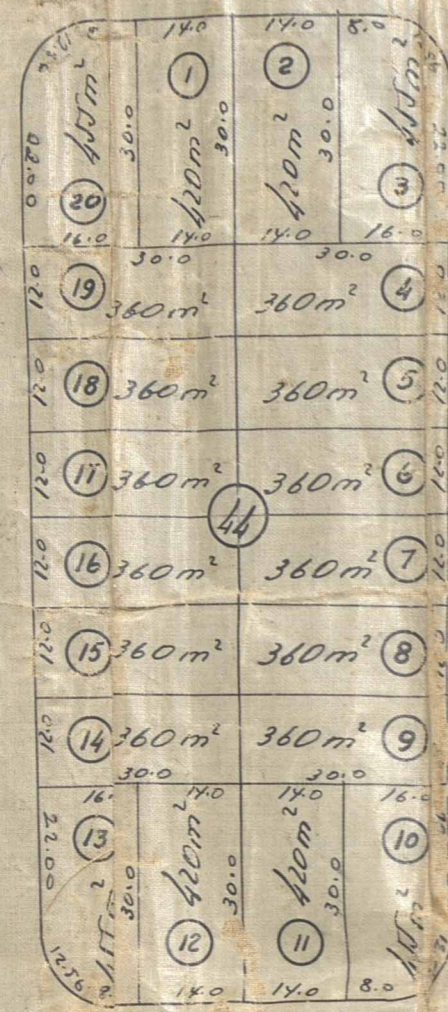 14.0 14.0 8.0
1 2
455m² 420m² 420m² 455m²
22.00 30.0 30.0 30.0
20 3
16.0 14.0 14.0 16.0
30.0 30.0
12.0 19 360m² 360m² 4
12.0 18 360m² 360m² 5 12.0
12.0 17 360m² 360m² 6 12.0
44
12.0 16 360m² 360m² 7 12.0
12.0 15 360m² 360m² 8
12.0 14 360m² 360m² 9
30.0 30.0
16. 14.0 14.0 16.0
22.00 13 420m² 420m² 10
30.0 30.0 30.0
455m² 12 11 455m²
12.56 14.0 14.0 8.0